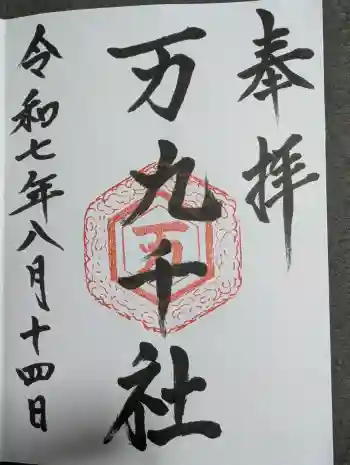 奉拝
万九千社
令和七年八月十四日